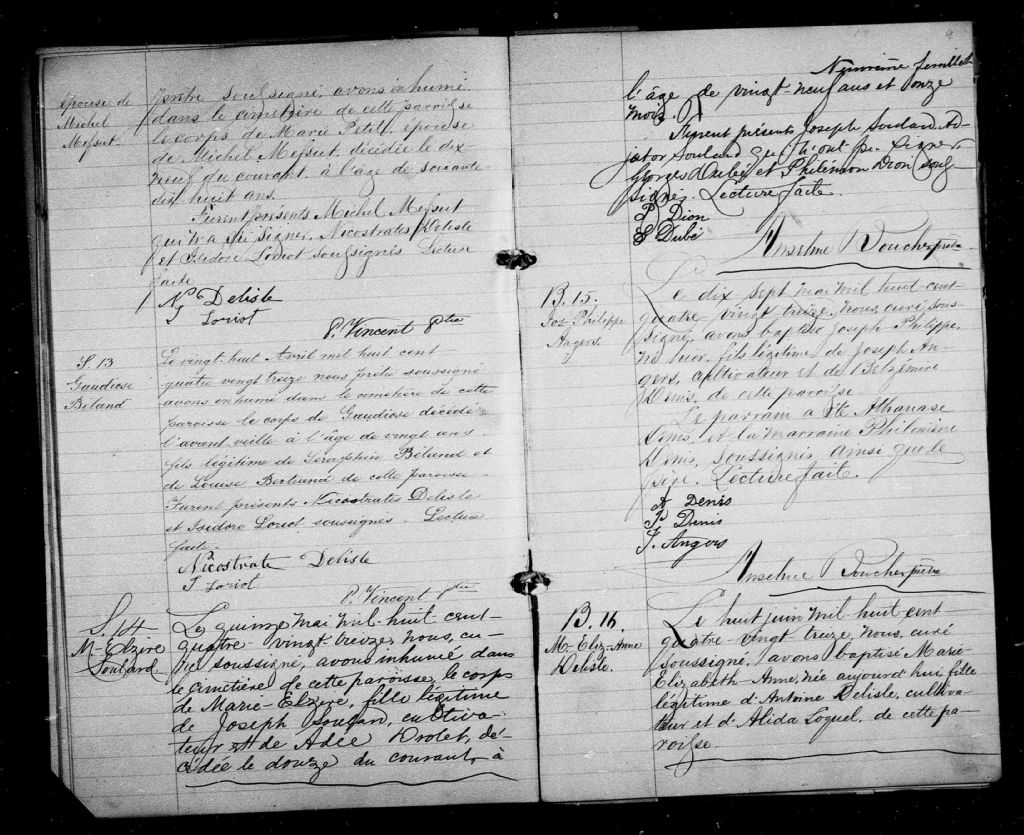 épouse de
Michel
Messut.
prêtre soussigné, avons inhumé
dans le cimetière de cette paroisse
le corps de Marie Petit, épouse
de Michel Messut, décédée le dix
neuf du courant, à l'âge de soixante
dix huit ans.
Furent présents Michel Messut
qui n'a su signer, Nicostrates Delisle
et Isidore Loriot soussignés. Lecture
faite
N. Delisle
I Loriot
P. Vincent Ptre
S. 13
Gaudiose
Béland
Le vingt huit Avril mil huit cent
quatre vingt treize nous prêtre soussigné
avons inhumé dans le cimetière de cette
paroisse le corps de Gaudiose décédé
l'avant veille à l'âge de vingt ans
fils légitime de Séraphin Béland et
de Louise Bertrand de cette paroisse
Furent présents Nicostrates Delisle
et Isidore Loriot soussignés. Lecture
faite
Nicostrate Delisle
I Loriot
P. Vincent ptre
S. 14
M-Elzire
Soulard
Le quinze mai mil huit cent
quatre-vingt treize, nous, cu-
ré soussigné, avons inhumé dans
le cimetière de cette paroisse, le corps
de Marie-Elzire, fille légitime
de Joseph Soulard, cultiva-
teur et de Adée Drolet, dé-
cédée le douze du courant, à
9
Neuvième feuillet
l'âge de vingt-neuf ans et onze
mois.
Furent présents Joseph Soulard,
Soulard qui n'ont pu signer
Georges Dubé et Philémon Dion sous
signés. Lecture faite.
P Dion
G Dubé
Anselme Boucher ptre
B. 15.
Jos-Philippe
Angers.
Le dix sept mai mil huit cent
quatre vingt treize, nous, curé sous-
signé, avons baptisé Joseph Philippe,
né hier, fils légitime de Joseph An-
gers, cultivateur et de Belzémire
Denis, de cette paroisse.
Le parrain a été Athanase
Denis, et la marraine Philomène
Denis, soussignés ainsi que le
père. Lecture faite.
A Denis
P Denis
J. Angers
Anselme Boucher ptre
B. 16
M-Eliz-Anne
Delisle.
Le huit juin mil huit cent
quatre-vingt treize, nous, curé
soussigné, avons baptisé Marie
Elizabeth-Anne, née aujourd'hui, fille
légitime d'Antoine Delisle, cultiva-
teur et d'Alida Loquel, de cette pa-
roisse.